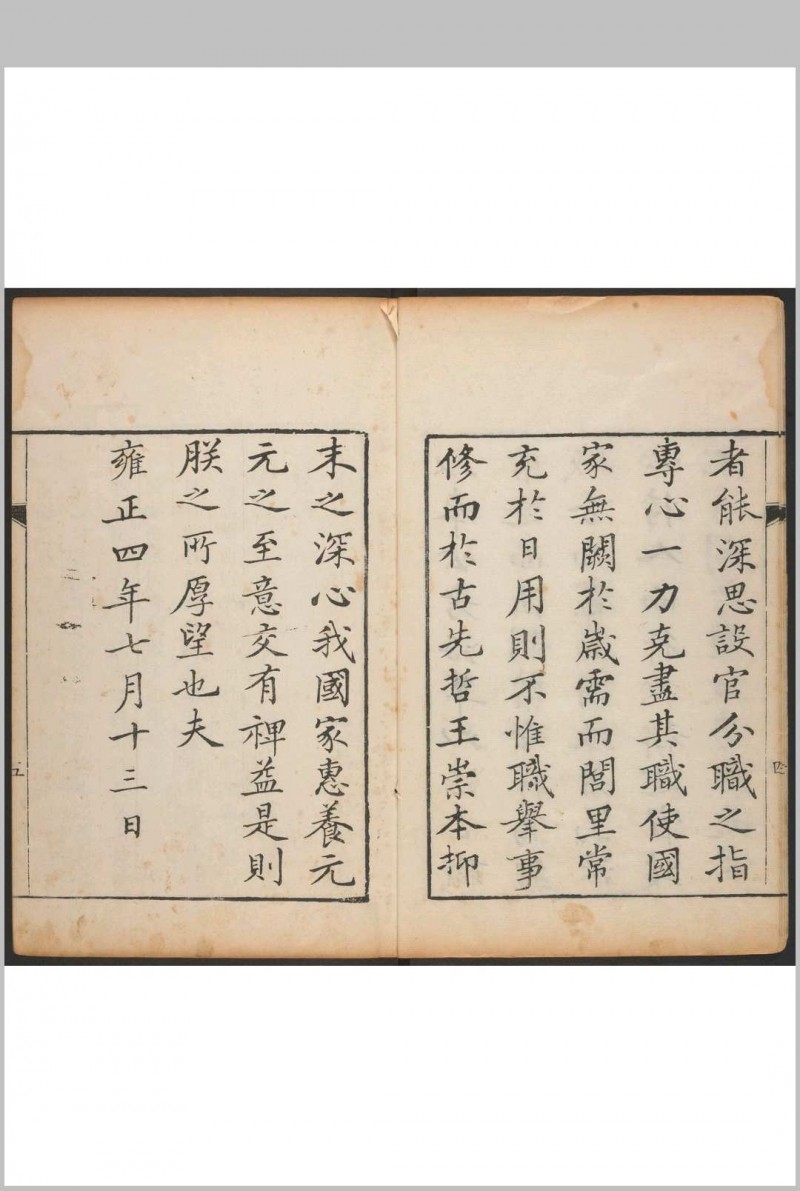 者能深思設官分職之指
專心一力克盡其職使國
家無闕於歲需而閭里常
充於日用則不惟職舉事
修而於古先哲王崇本抑
末之深心我國家惠養元
元之至意交有裨益是則
朕之所厚望也夫
雍正四年七月十三日
四
五